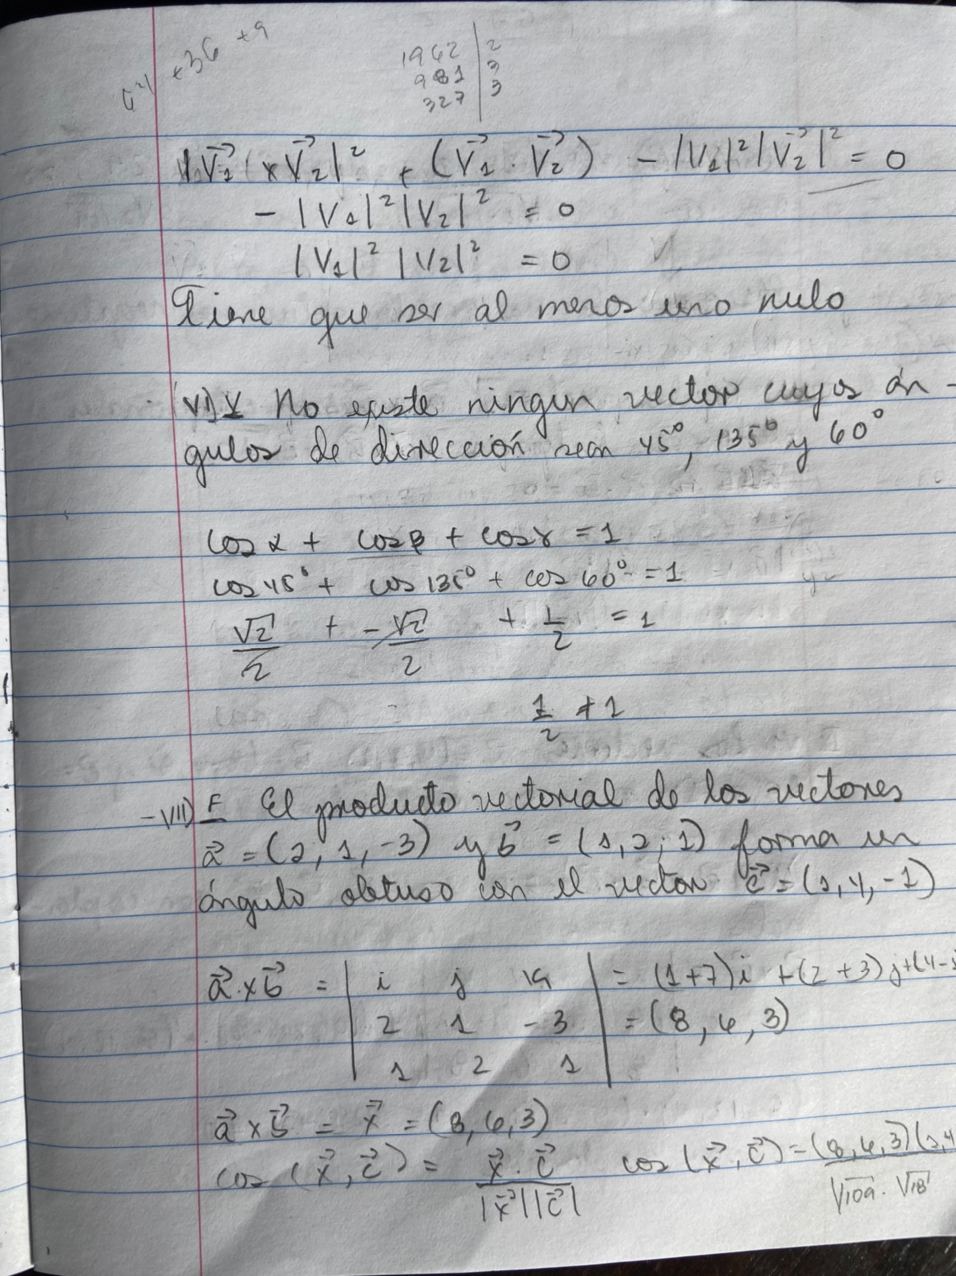 +36 +9
1962 | 2
981 | 3
327 | 3
|V⃗₁ × V⃗₂|² + (V⃗₁ · V⃗₂) - |V₁|²|V⃗₂|² = 0
- |V₁|²|V₂|² = 0
|V₁|² |V₂|² = 0
Tiene que ser al menos uno nulo
VI) V No existe ningun vector cuyos án-
gulos de dirección sean 45°, 135° y 60°
cos α + cos β + cos γ = 1
cos 45° + cos 135° + cos 60° = 1
√2/2 + -√2/2 + 1/2 = 1
1/2 ≠ 1
-VII) F El producto vectorial de los vectores
a⃗ = (2, 1, -3) y b⃗ = (1, 2, 1) forma un
ángulo obtuso con el vector c⃗ = (1, 4, -1)
a⃗ × b⃗ = | i j k | = (1+7)i + (2+3)j + (4-
| 2 1 -3 | = (8, 6, 3)
| 1 2 1 |
a⃗ × b⃗ = x⃗ = (8, 6, 3)
cos (x⃗, c⃗) = x⃗ · c⃗ / |x⃗||c⃗| cos (x⃗, c⃗) = (8, 6, 3)(1, 4 / √109 · √18